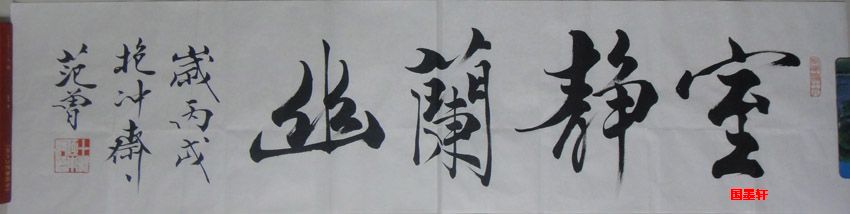 室靜蘭幽
歲丙戌
抱冲齋
范曾
国墨轩